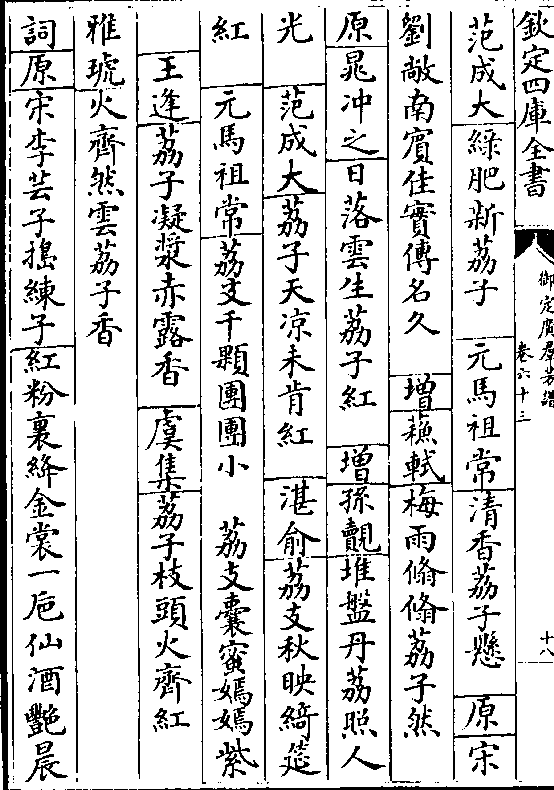 欽定四庫全書
御定廣羣芳譜
卷六十三
十八
范成大綠肥新荔子　元馬祖常清香荔子懸　原宋
劉敞南賓佳實傳名久　增蘇軾梅雨翛翛荔子然
原晁冲之日落雲生荔子紅　增孫覿堆盤丹荔照人
光　范成大荔子天凉未肯紅　湛俞荔支秋映綺筵
紅　元馬祖常荔支千顆團團小　荔支囊蜜嫣嫣紫
王逢荔子凝漿赤露香　虞集荔子枝頭火齊紅
雅琥火齊然雲荔子香
詞原宋李芸子搗練子紅粉裏絳金裳一卮仙酒艷晨